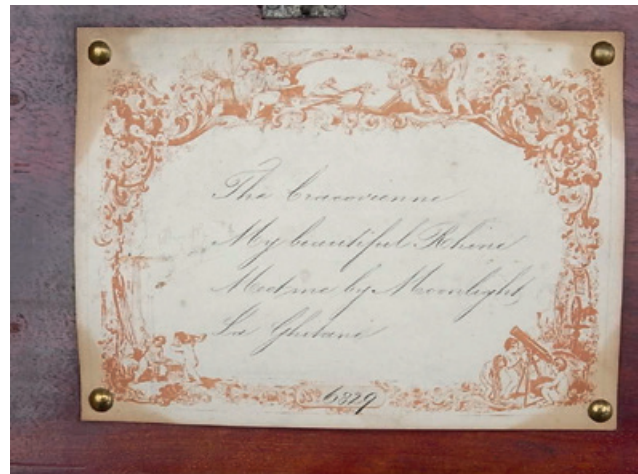 The Cracovienne
My beautiful Rhine
Meet me by Moonlight
La Ghitani
6829